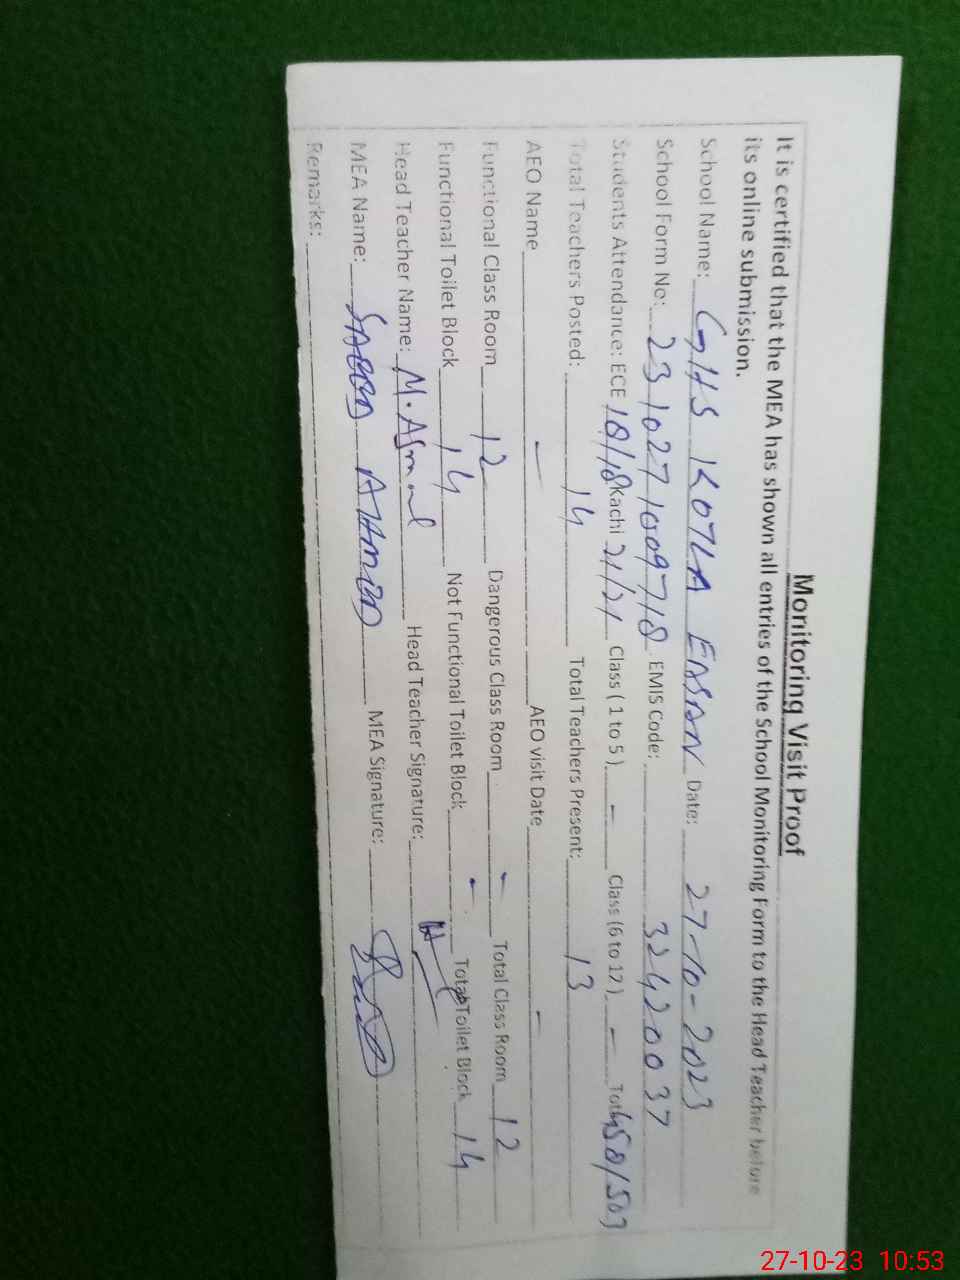 Monitoring Visit Proof
It is certified that the MEA has shown all entries of the School Monitoring Form to the Head Teacher before
its online submission.
School Name: GHS KOTLA EASAN Date: 27-10-2023
School Form No: 23102710097718 EMIS Code: 32420037
Students Attendance: ECE 18/18 Kachi 21/21 Class ( 1 to 5 ) - Class (6 to 12 ) - Total 450/507
Total Teachers Posted: 14 Total Teachers Present: 13
AEO Name - AEO visit Date -
Functional Class Room 12 Dangerous Class Room - Total Class Room 12
Functional Toilet Block 14 Not Functional Toilet Block - Total Toilet Block 14
Head Teacher Name: M. Asmal Head Teacher Signature:
MEA Name: MEA Signature:
Remarks:
27-10-23 10:53